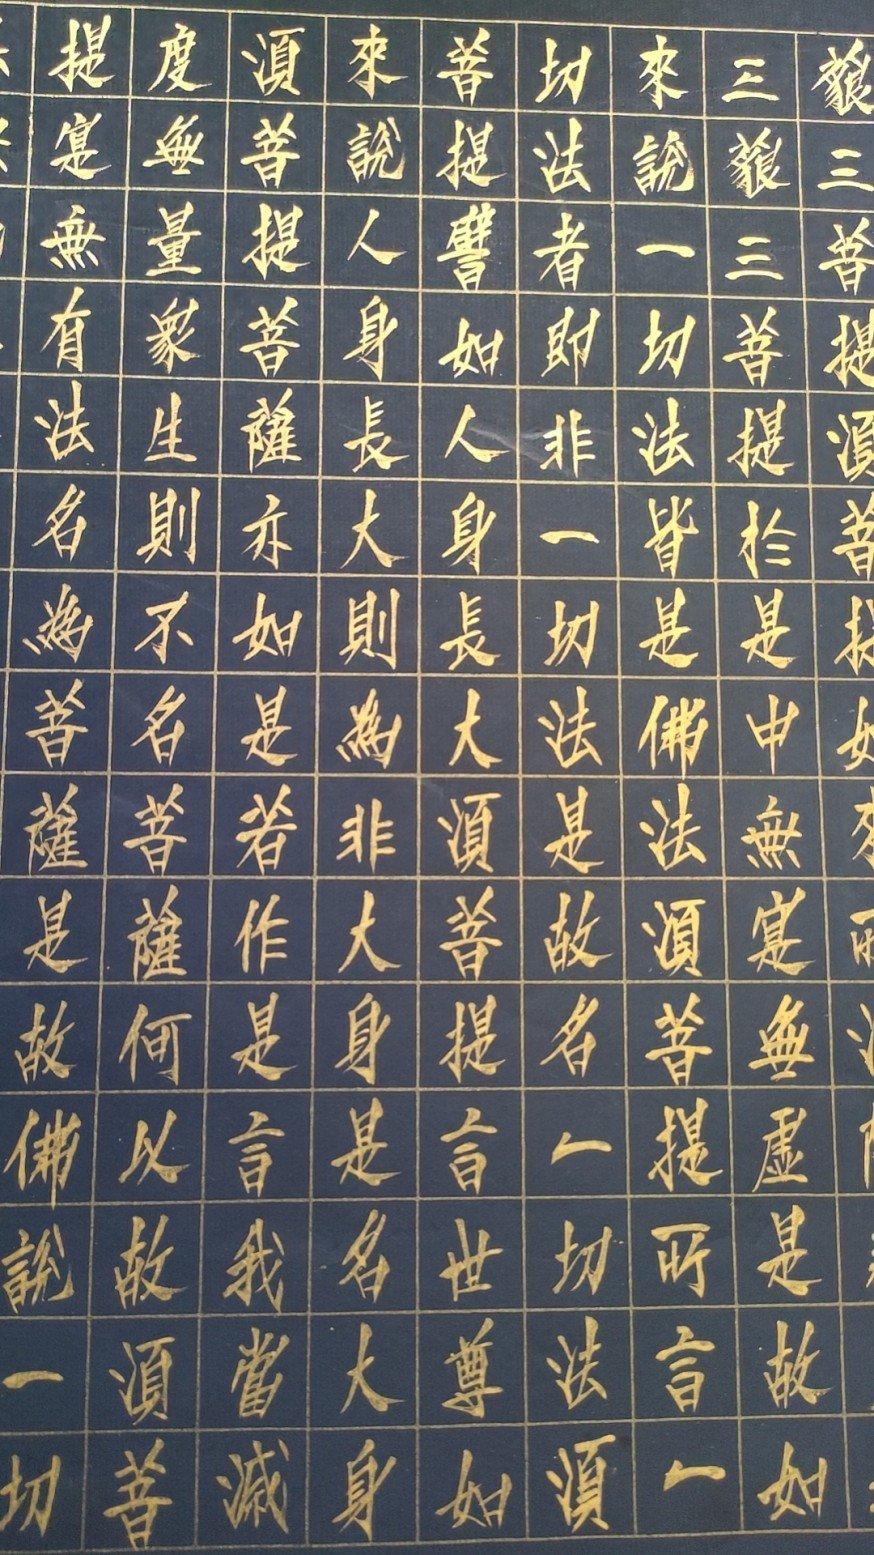 藐三菩提須菩提如來所
三藐三菩提於是中無寔無虛是故如
來說一切法皆是佛法須菩提所言一
切法者即非一切法是故名一切法須
菩提譬如人身長大須菩提言世尊如
來說人身長大則為非大身是名大身
須菩提菩薩亦如是若作是言我當滅
度無量眾生則不名菩薩何以故須菩
提寔無有法名為菩薩是故佛說一切